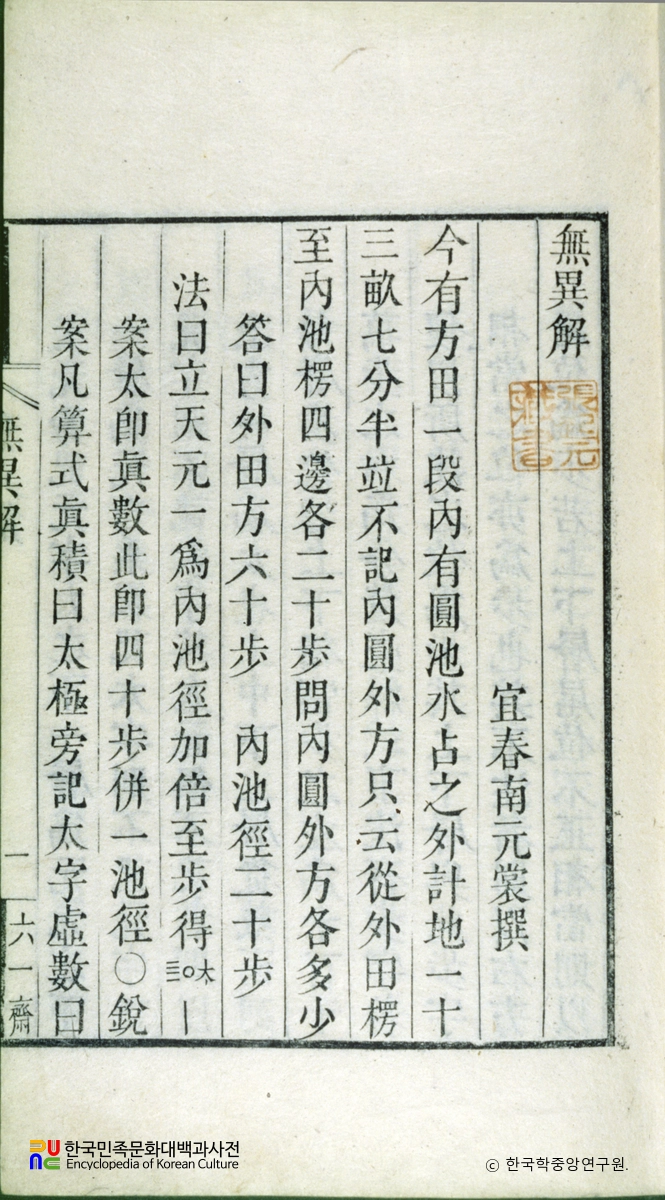 無異解
宜春南元裳撰
今有方田一段內有圓池水占之外計地一十
三畝七分半竝不記內圓外方只云從外田楞
至內池楞四邊各二十步問內圓外方各多少
答曰外田方六十步 內池徑二十步
法曰立天元一爲內池徑加倍至步得
案太卽眞數此卽四十步併一池徑〇銳
案凡算式眞積曰太極旁記太字虛數曰
無異解
一
六一齋
한국민족문화대백과사전
Encyclopedia of Korean Culture
© 한국학중앙연구원.